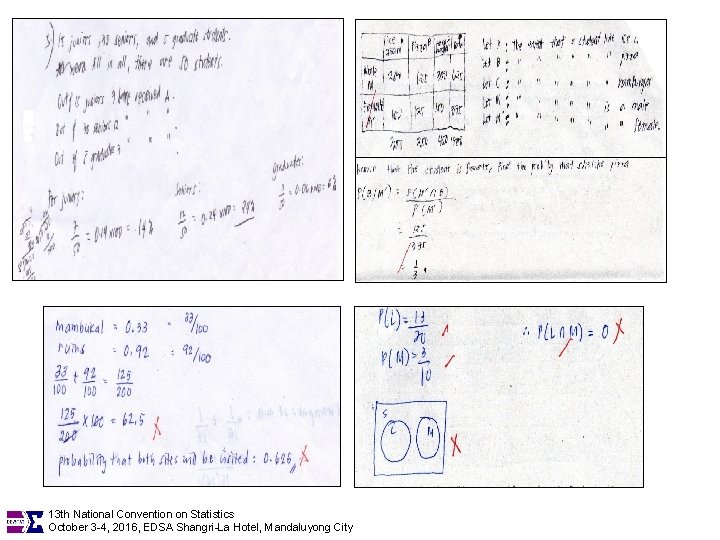 5) 15 juniors, 30 seniors, and 5 graduate students.
all in all, there are 50 students.
Out of 15 juniors 7 have received A.
Out of 30 seniors 12 " " "
Out of 5 graduates 3 " " "
For juniors:
7/50 = 0.14 x 100 = 14%
seniors:
12/50 = 0.24 x 100 = 24%
graduates:
3/50 = 0.06 x 100 = 6%
Let A : The event that a student like ice c.
Let B : " " " " " pizza
Let C : " " " " " hamburger
Let M : " " " " is a male
Let M' : " " " " " female.
that the student is female, find the prob'ly that she like pizza
P(B/M') = P(M' ∩ B)
P(M')
= 125
395
= 1
3
mambukal = 0.33 = 33/100
ruins = 0.92 = 92/100
33/100 + 92/100 = 125/200
125/200 x 100 = 62.5
probability that both sites will be visited : 0.625
P(L) = 13/20
P(M) = 3/10
∴ P(L ∩ M) = 0
S
L M
13th National Convention on Statistics
October 3-4, 2016, EDSA Shangri-La Hotel, Mandaluyong City